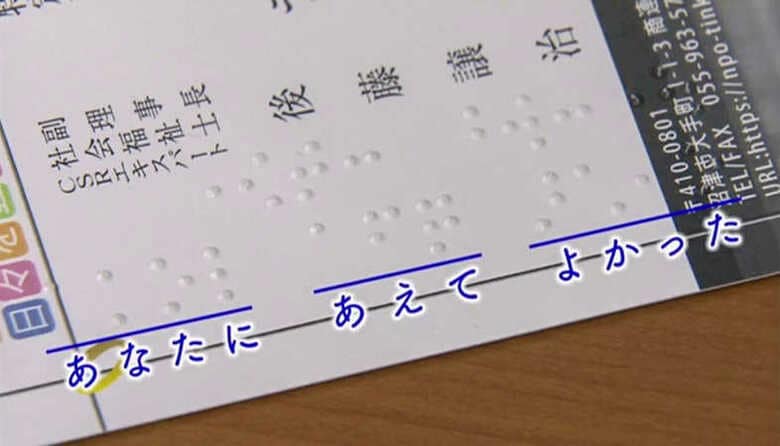 副理事長
社会福祉士
CSRエキスパート
後藤 譲治
〒410-0801
沼津市大手町 1-1-3
TEL/FAX 055-963-57
URL:https://npo-tink
日々
あなたに あえて よかった